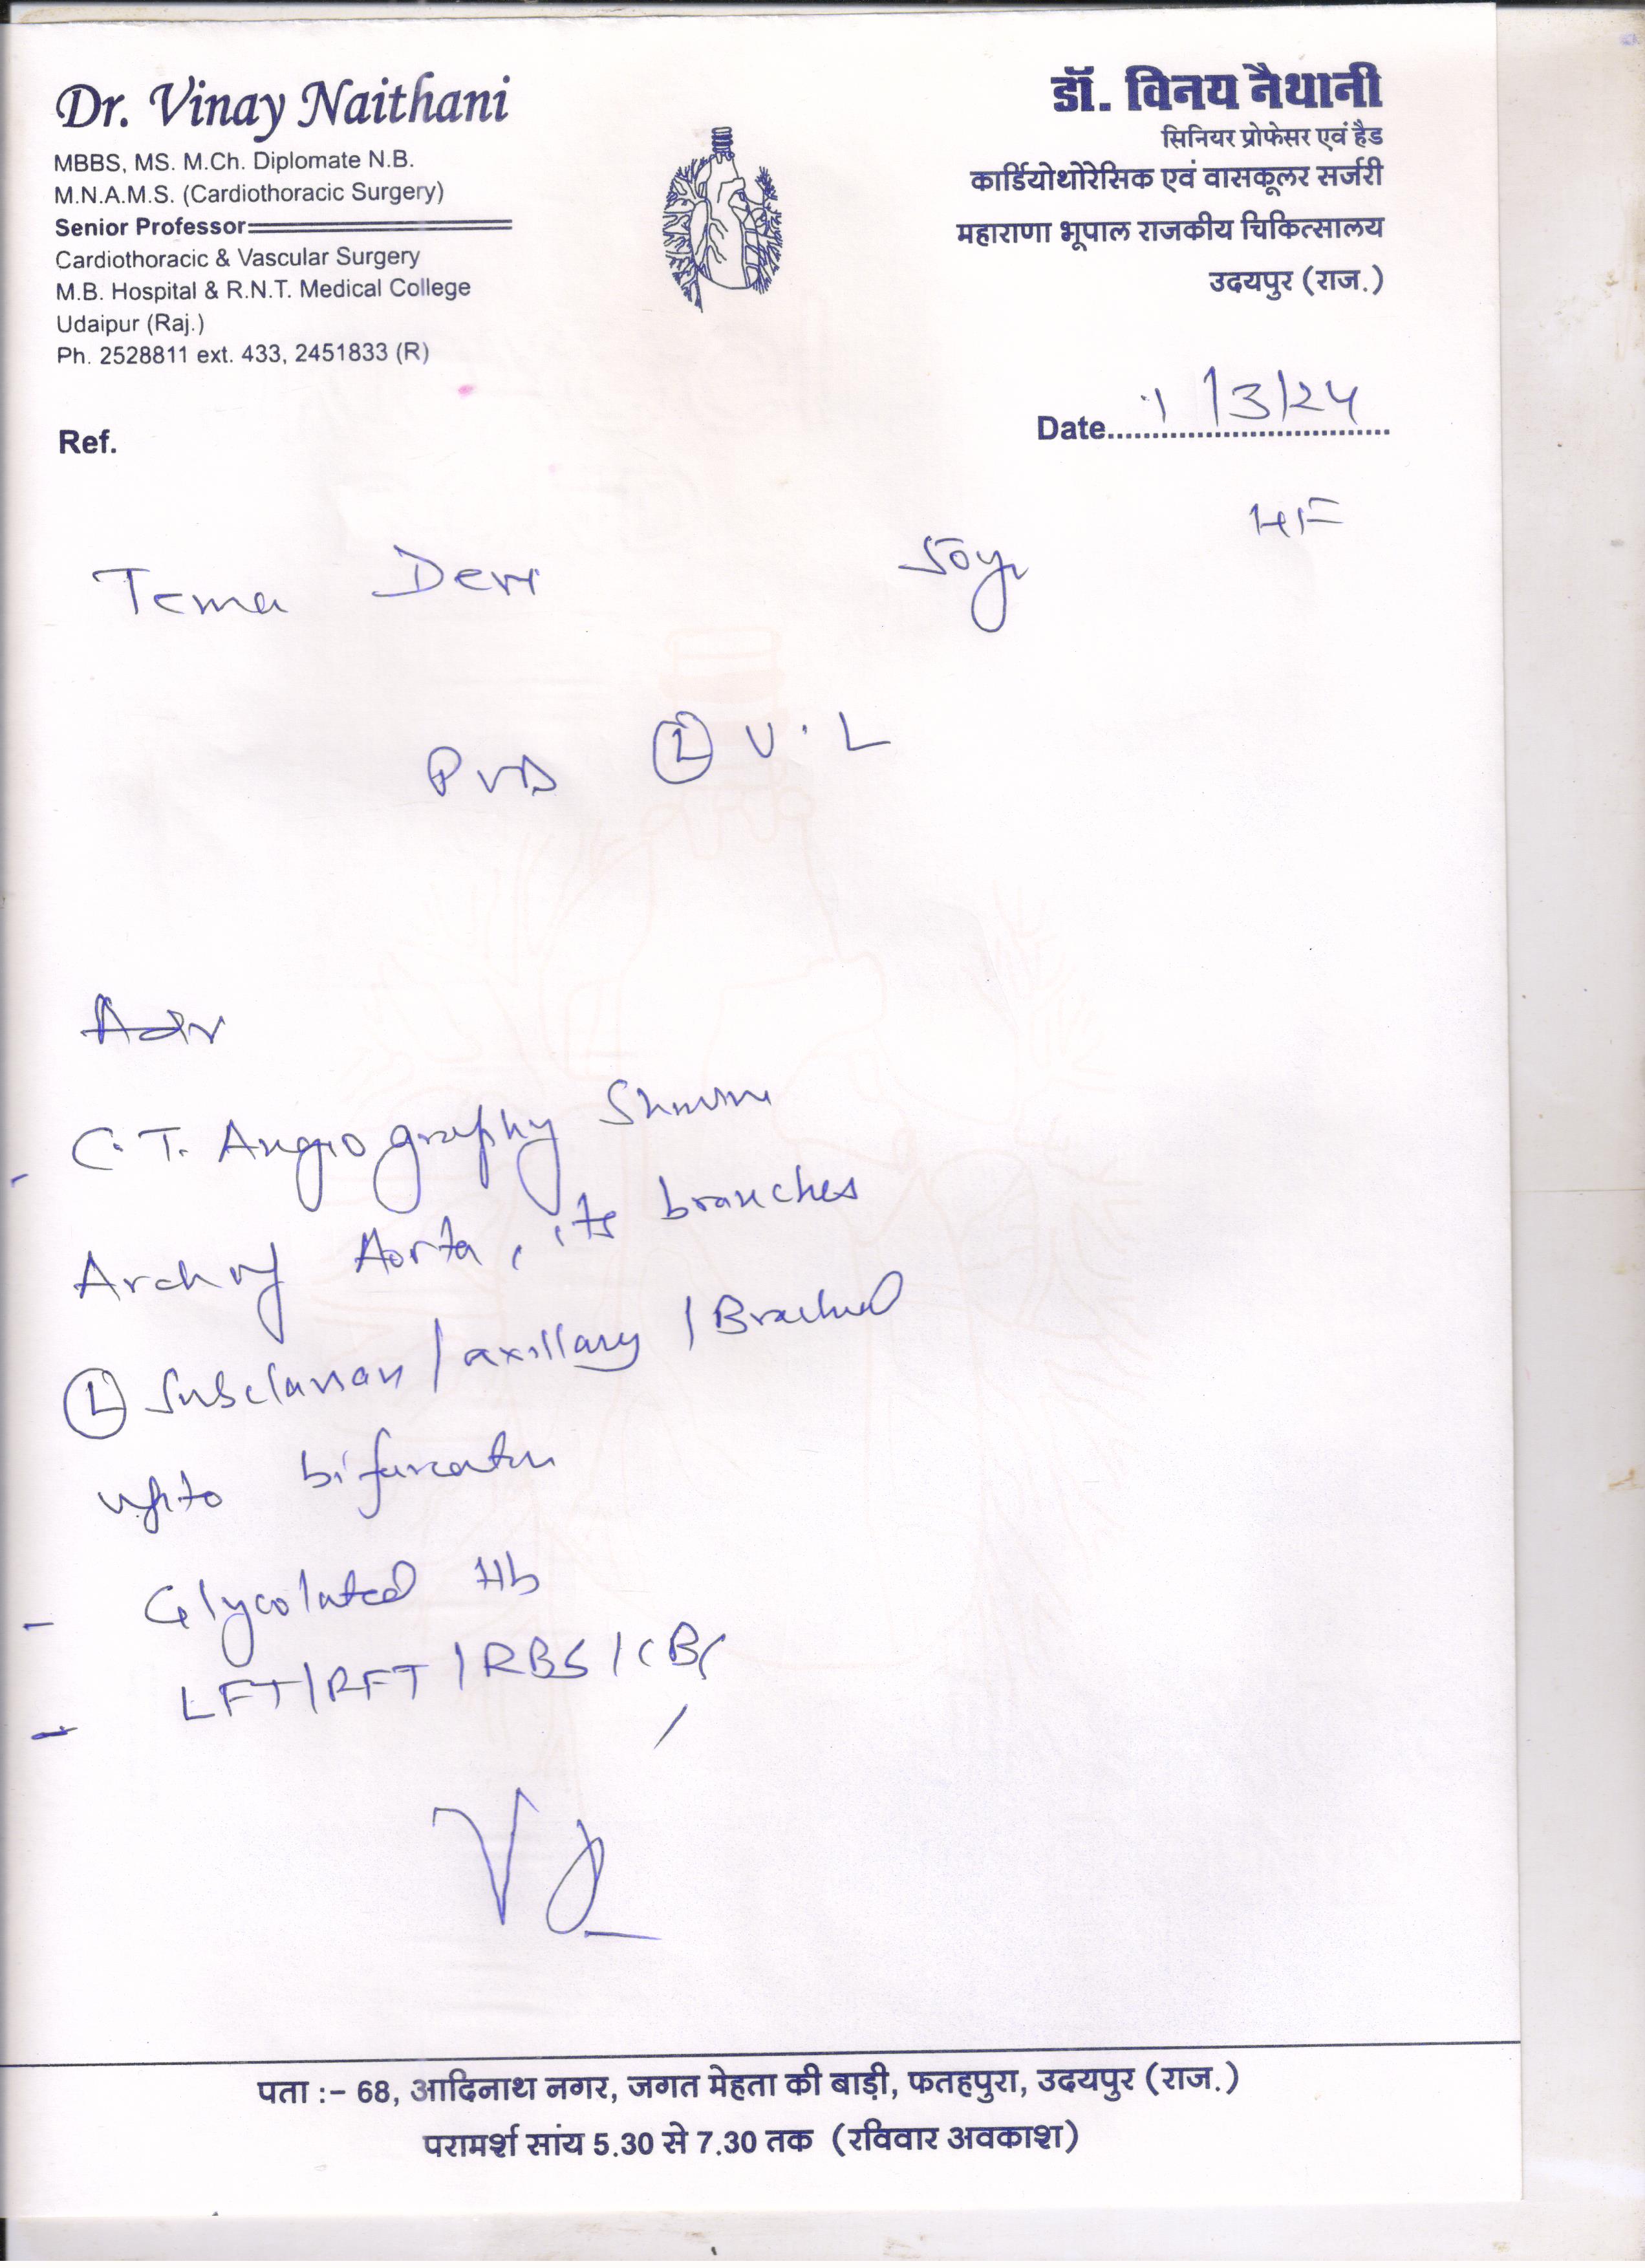 Dr. Vinay Naithani
MBBS, MS. M.Ch. Diplomate N.B.
M.N.A.M.S. (Cardiothoracic Surgery)
Senior Professor
Cardiothoracic & Vascular Surgery
M.B. Hospital & R.N.T. Medical College
Udaipur (Raj.)
Ph. 2528811 ext. 433, 2451833 (R)
डॉ. विनय नैथानी
सिनियर प्रोफेसर एवं हैड
कार्डियोथोरेसिक एवं वासकूलर सर्जरी
महाराणा भूपाल राजकीय चिकित्सालय
उदयपुर (राज.)
Ref.
Date 1/3/24
Devi 50yr
PVD Ⓛ U.L
Adv
- C.T. Angiography
Arch of Aorta, its branches
Ⓛ Subclavian / axillary / Brachial
upto bifurcation
- Glycolated Hb
- LFT/RFT/RBS/CBC
पता :- 68, आदिनाथ नगर, जगत मेहता की बाड़ी, फतहपुरा, उदयपुर (राज.)
परामर्श सांय 5.30 से 7.30 तक (रविवार अवकाश)